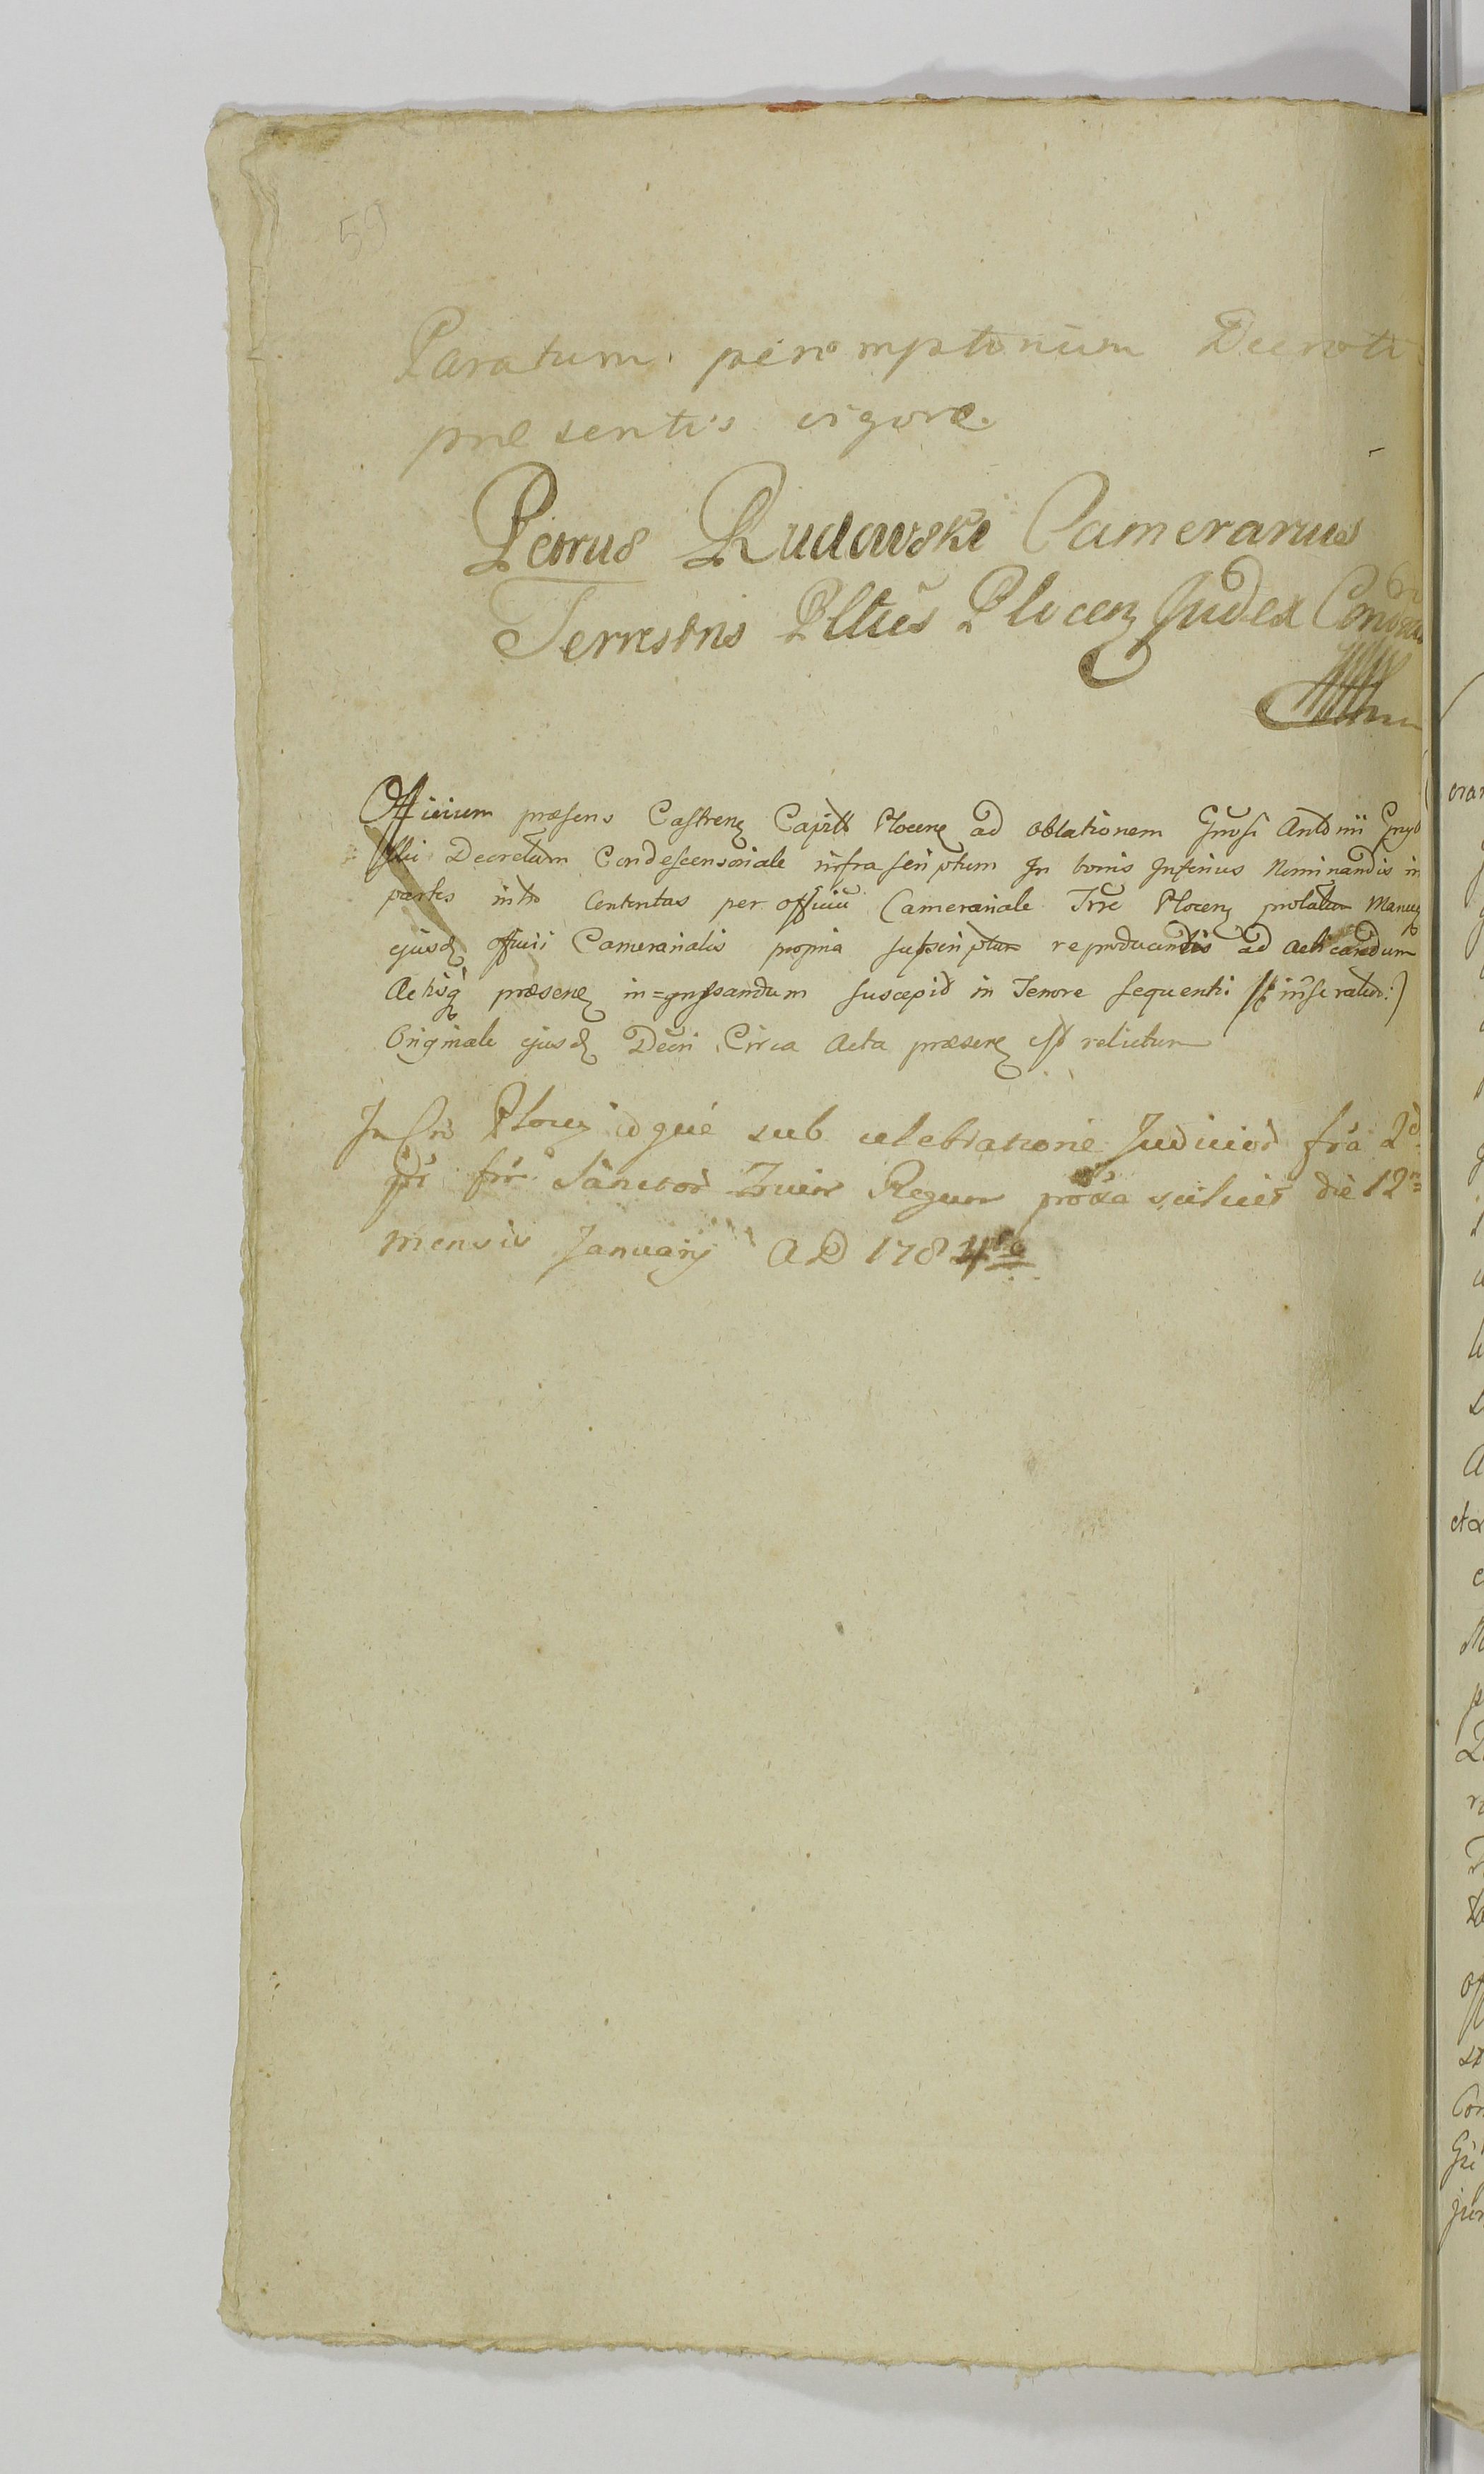 59
Paratum peremptorium Decreti
præsentis vigore.
Petrus Rudowski Camerarius
Terrestris Pltus Plocen Judex Cond
Officium præsens Castrens Capitt Plocens ad oblationem Gnosi Antonii
Decretum Condescensoriale infra scriptum In bonis Inferius Nominandis in
partes intro Contentas per officiu Camerariale Trre Plocens prolatum Manuq
ejusd officii Camerarialis propria subscriptum reproducentis ad acticandum
Actisq præsens in=grossandum suscepit in Tenore sequenti inseratur:)
Originale ejusd Decri Circa Acta præsens est relictum
Plocen idque sub celebratione Judicior fra 2d
pt fm Sanctor Trium Regum proxa scilicet die 12
mensis Januarij AD 1784to